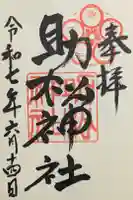 奉拝
助松神社
令和七年六月十四日